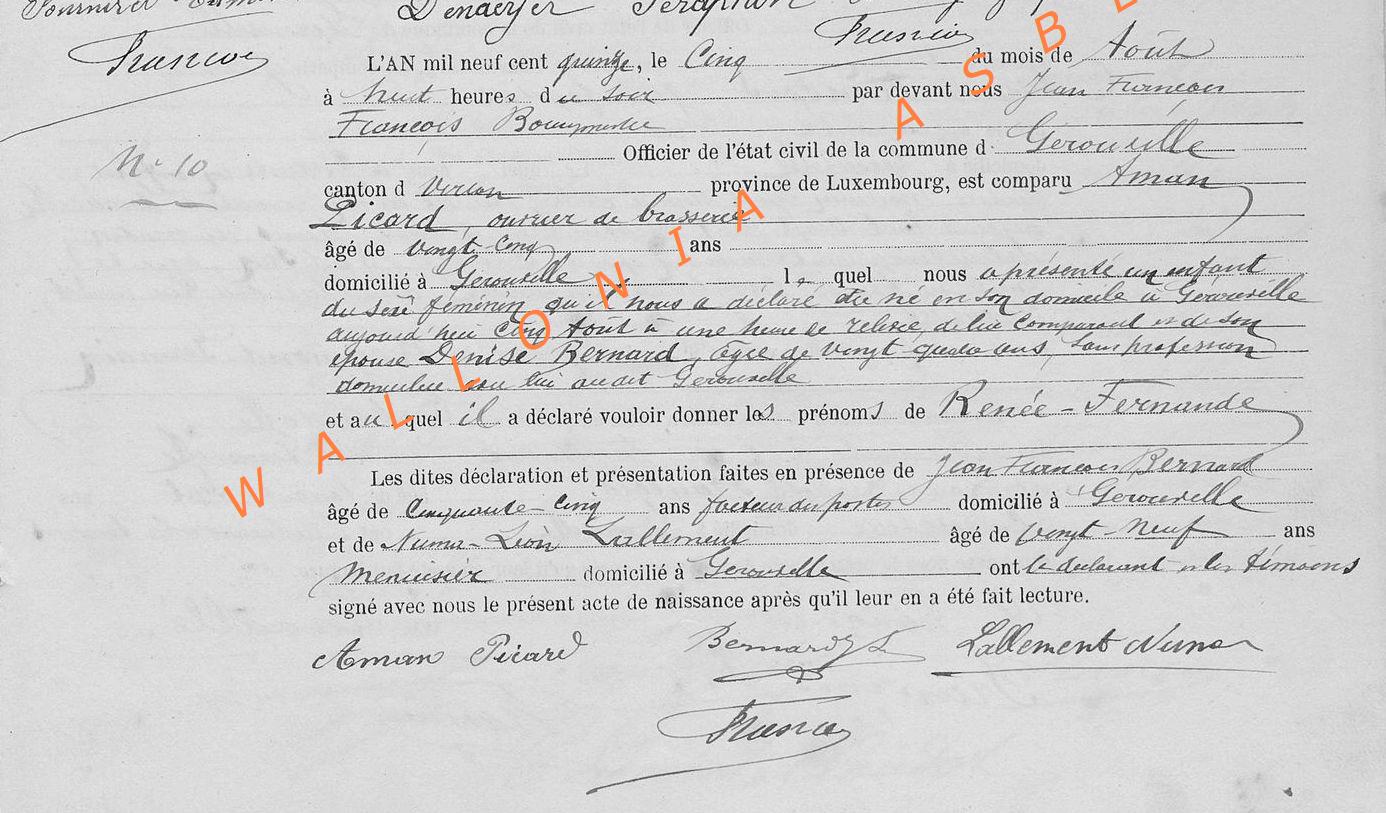 Denaeyer Séraphin
François
François
L'AN mil neuf cent quinze, le Cinq du mois de Août
à huit heures du soir par devant nous Jean François
François
N° 10
Officier de l'état civil de la commune d Gérouville
canton d Virton province de Luxembourg, est comparu Aman
Picard, ouvrier de brasserie
âgé de vingt-cinq ans
domicilié à Gérouville lequel nous a présenté un enfant
du sexe féminin qu'il nous a déclaré être né en son domicile à Gérouville
aujourd'hui cinq Août à une heure de relevée, de lui comparant et de son
épouse Denise Bernard, âgée de vingt quatre ans, sans profession
domiciliée avec lui au dit Gérouville
et auquel il a déclaré vouloir donner les prénoms de Renée-Fernande
Les dites déclaration et présentation faites en présence de Jean François Bernard
âgé de Cinquante-Cinq ans facteur des postes domicilié à Gérouville
et de Numa-Léon Lallement âgé de vingt-neuf ans
Menuisier domicilié à Gérouville ont le déclarant et les témoins
signé avec nous le présent acte de naissance après qu'il leur en a été fait lecture.
Aman Picard Bernard Lallement Numa
François
WALLONIA ASB